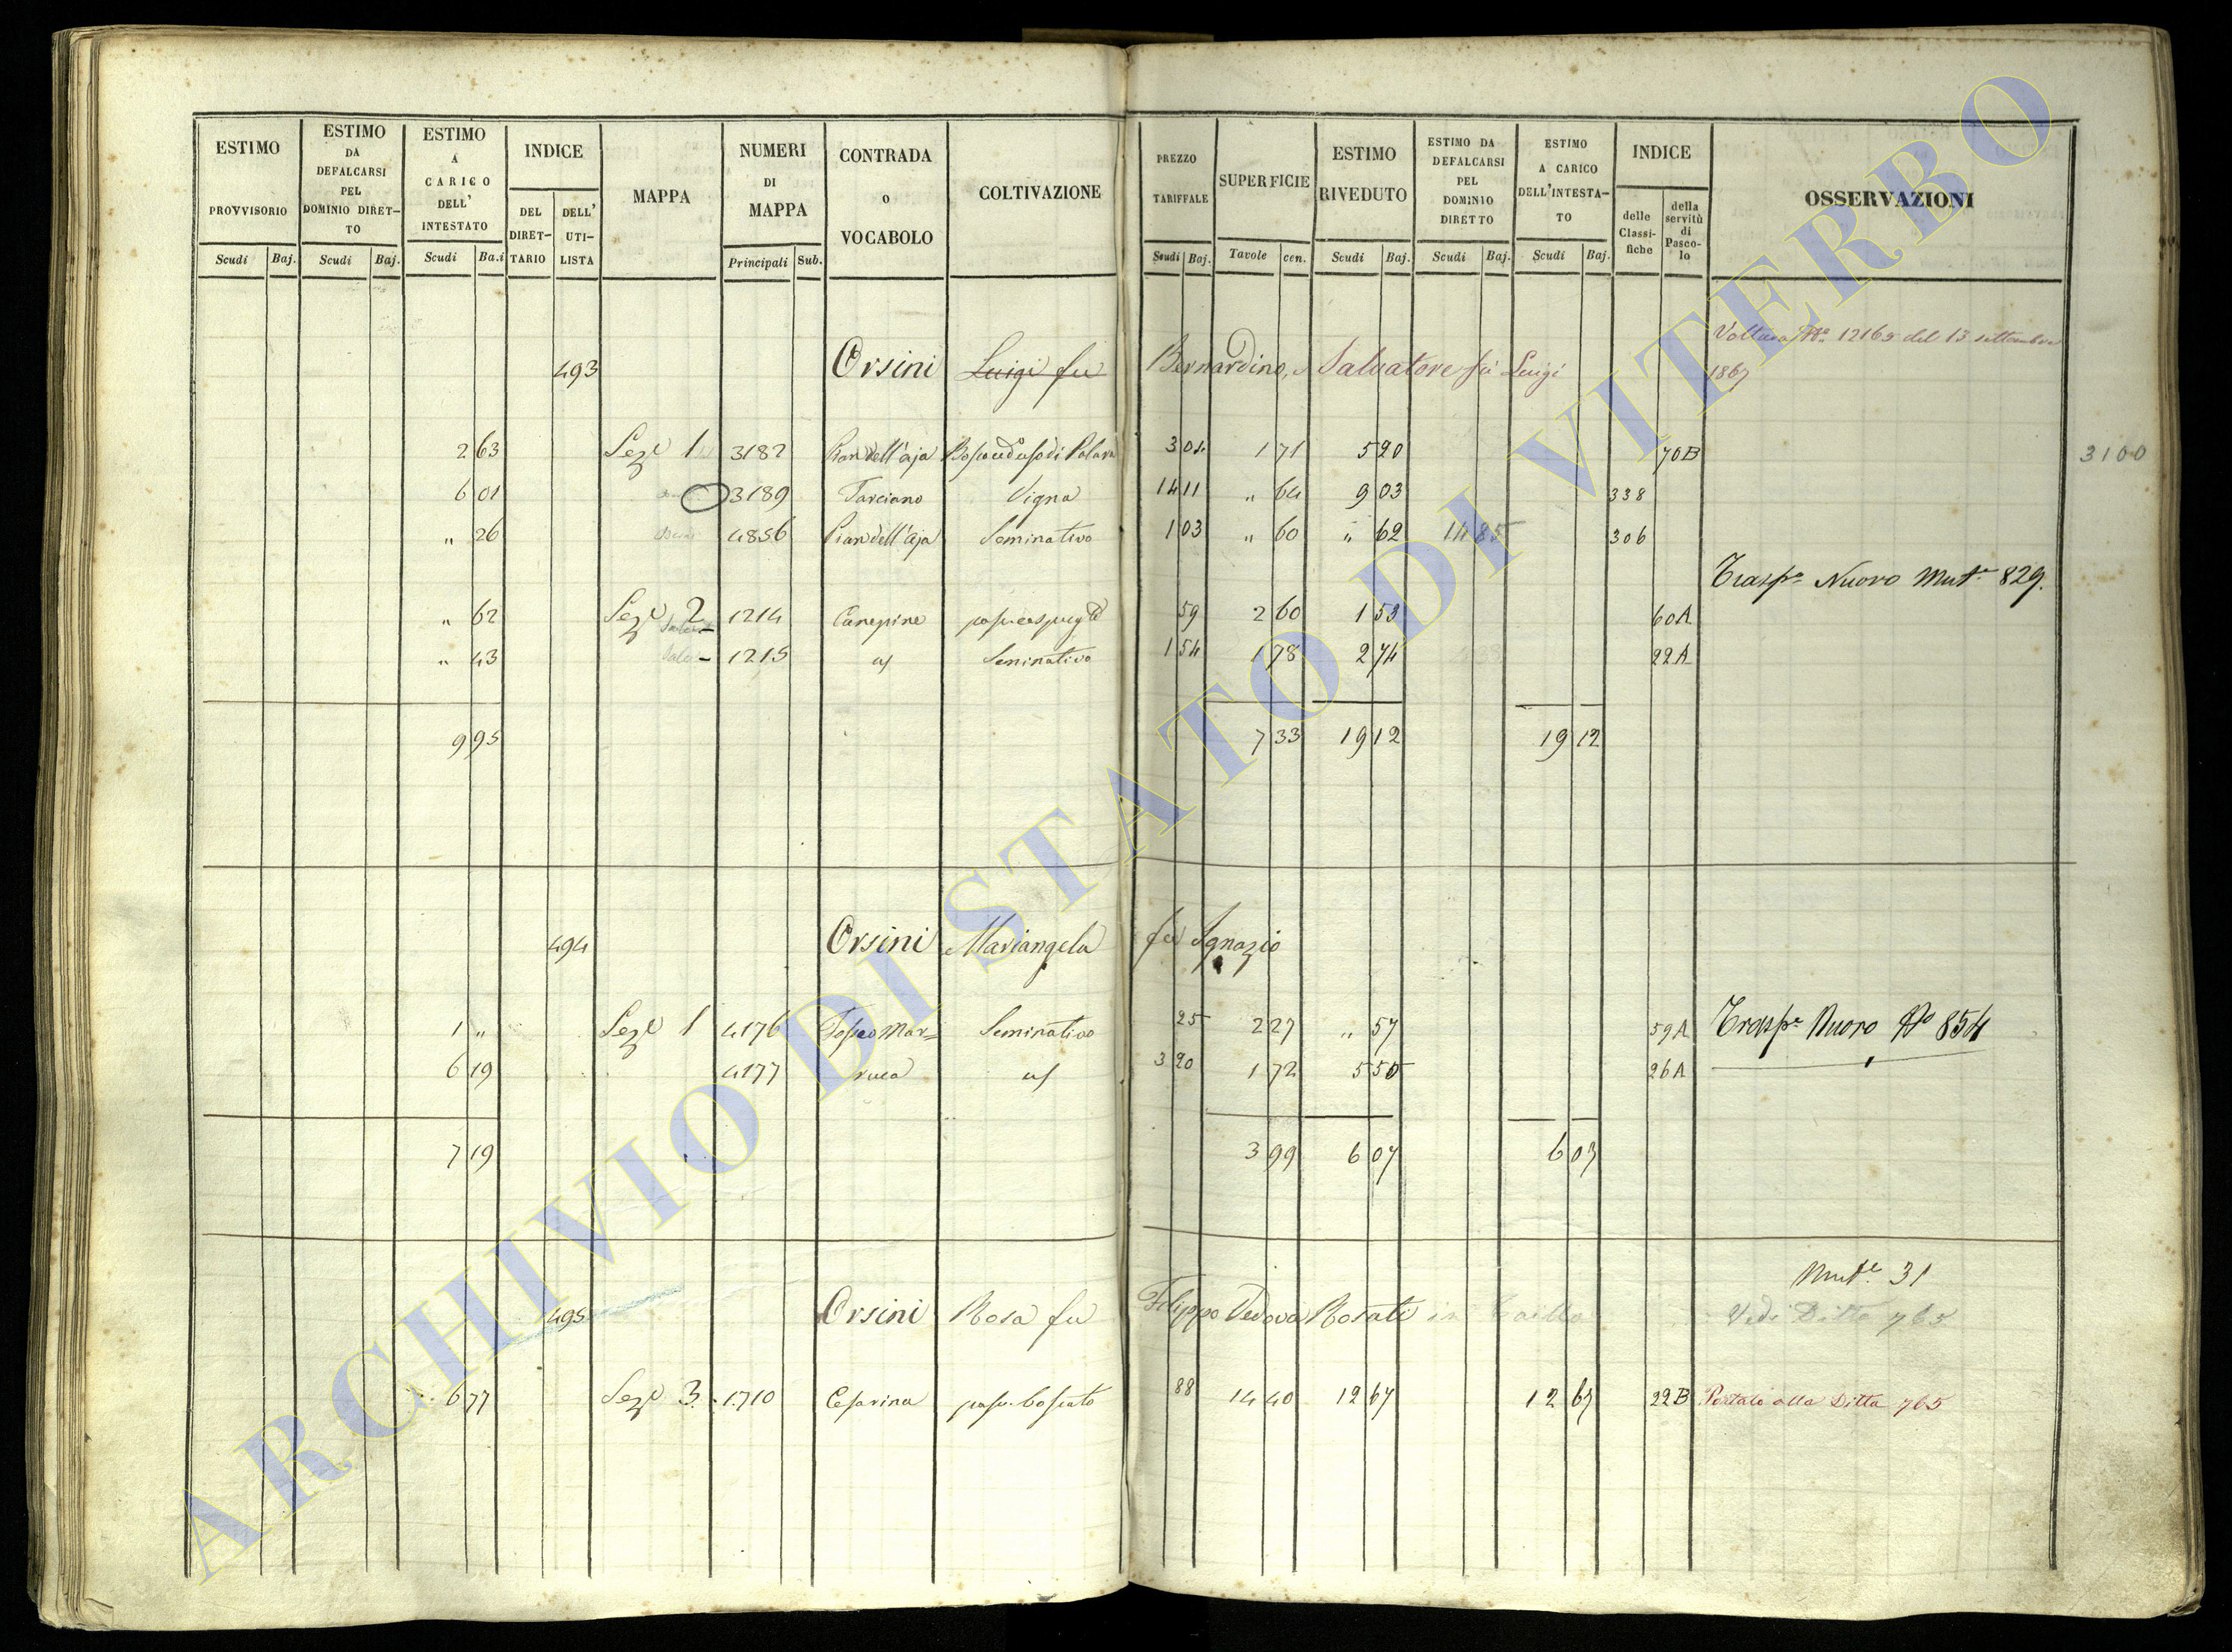 ESTIMO PROVVISORIO
Scudi Baj.
ESTIMO DA DEFALCARSI PEL DOMINIO DIRET- TO
Scudi Baj.
ESTIMO A CARICO DELL' INTESTATO
Scudi Ba.i
INDICE
DEL DIRET- TARIO
DELL' UTI- LISTA
MAPPA
NUMERI DI MAPPA
Principali Sub.
CONTRADA o VOCABOLO
COLTIVAZIONE
PREZZO TARIFFALE
Scudi Baj.
SUPERFICIE
Tavole cen.
ESTIMO RIVEDUTO
Scudi Baj.
ESTIMO DA DEFALCARSI PEL DOMINIO DIRETTO
Scudi Baj.
ESTIMO A CARICO DELL'INTESTA- TO
Scudi Baj.
INDICE
delle Classi- fiche
della servitù di Pasco- lo
OSSERVAZIONI
Voltura No 12165 del 13 settembre
493 Orsini Luigi fu Bernardino, e Salvatore fu Luigi 1867
2 63 Sez.e 1 3182 Piandell'aja 3 04 1 71 5 20 70B 3100
6 01 3189 Tarciano Vigna 14 11 " 64 9 03 338
" 26 4856 Piandell'aja Seminativo 1 03 " 60 " 62 14 85 306
Trasp.o Nuovo Mut.e 829.
" 62 Sez.e 2 1214 Canepine 59 2 60 1 53 60A
" 43 1215 Seminativo 1 54 1 78 2 74 22A
9 95 7 33 19 12 19 12
494 Orsini Mariangela fu Ignazio
1 " Sez.e 1 4176 Seminativo 25 2 27 " 57 59A Trasp.o Nuovo No 854
6 19 4177 3 20 1 72 5 50 26A
7 19 3 99 6 07 6 07
Mut.e 31
495 Orsini Rosa fu Filippo Vedova Rosati in Vedi Ditta 765
6 77 Sez.e 3 1710 Cesarina pasc. boscato 88 14 40 12 67 12 67 22B Portato alla Ditta 765
ARCHIVIO DI STATO DI VITERBO